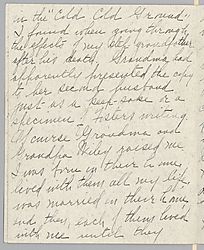 in the "Cold Cold Ground".
I found when going through
the effects of my step grandfather
after his death, Grandma had
apparently presented the copy
to her second husband
just as a keep-sake or a
specimen of Fosters writing
Of course Grandma and
Grandpa Wiley raised me
I was born in their home,
lived with them all my life
was married in their home
and they each of them lived
with me until they